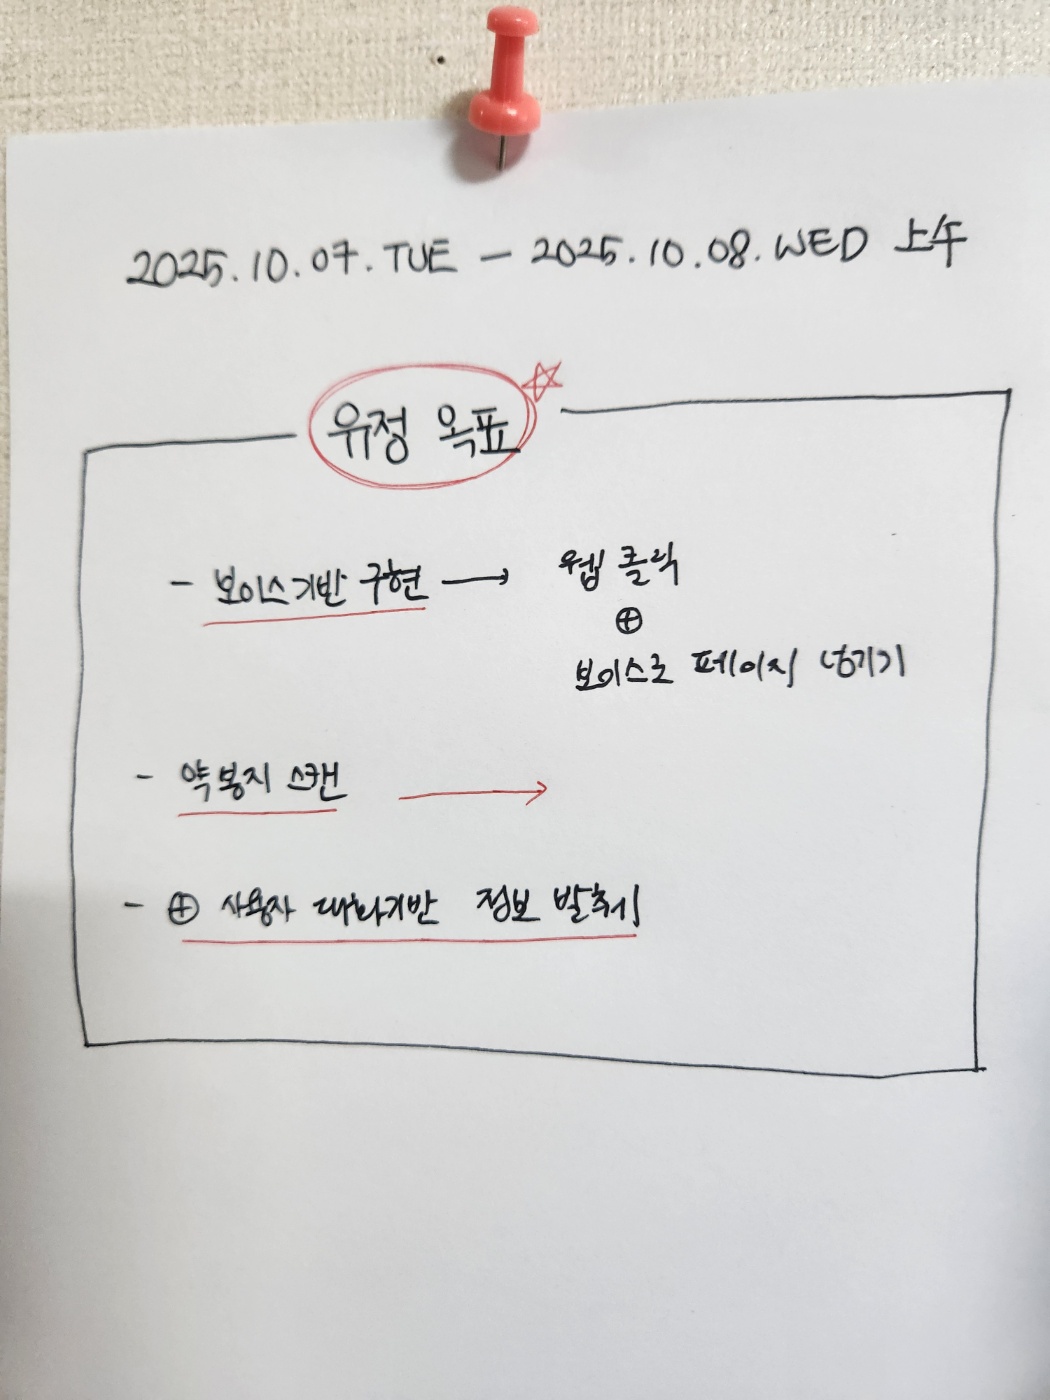 2025.10.07.TUE — 2025.10.08.WED 上午
유정 목표 ☆
- 보이스기반 구현 → 웹 클릭
⊕
보이스로 페이지 넘기기
- 약봉지 스캔 →
- ⊕ 사용자 대화기반 정보 발취